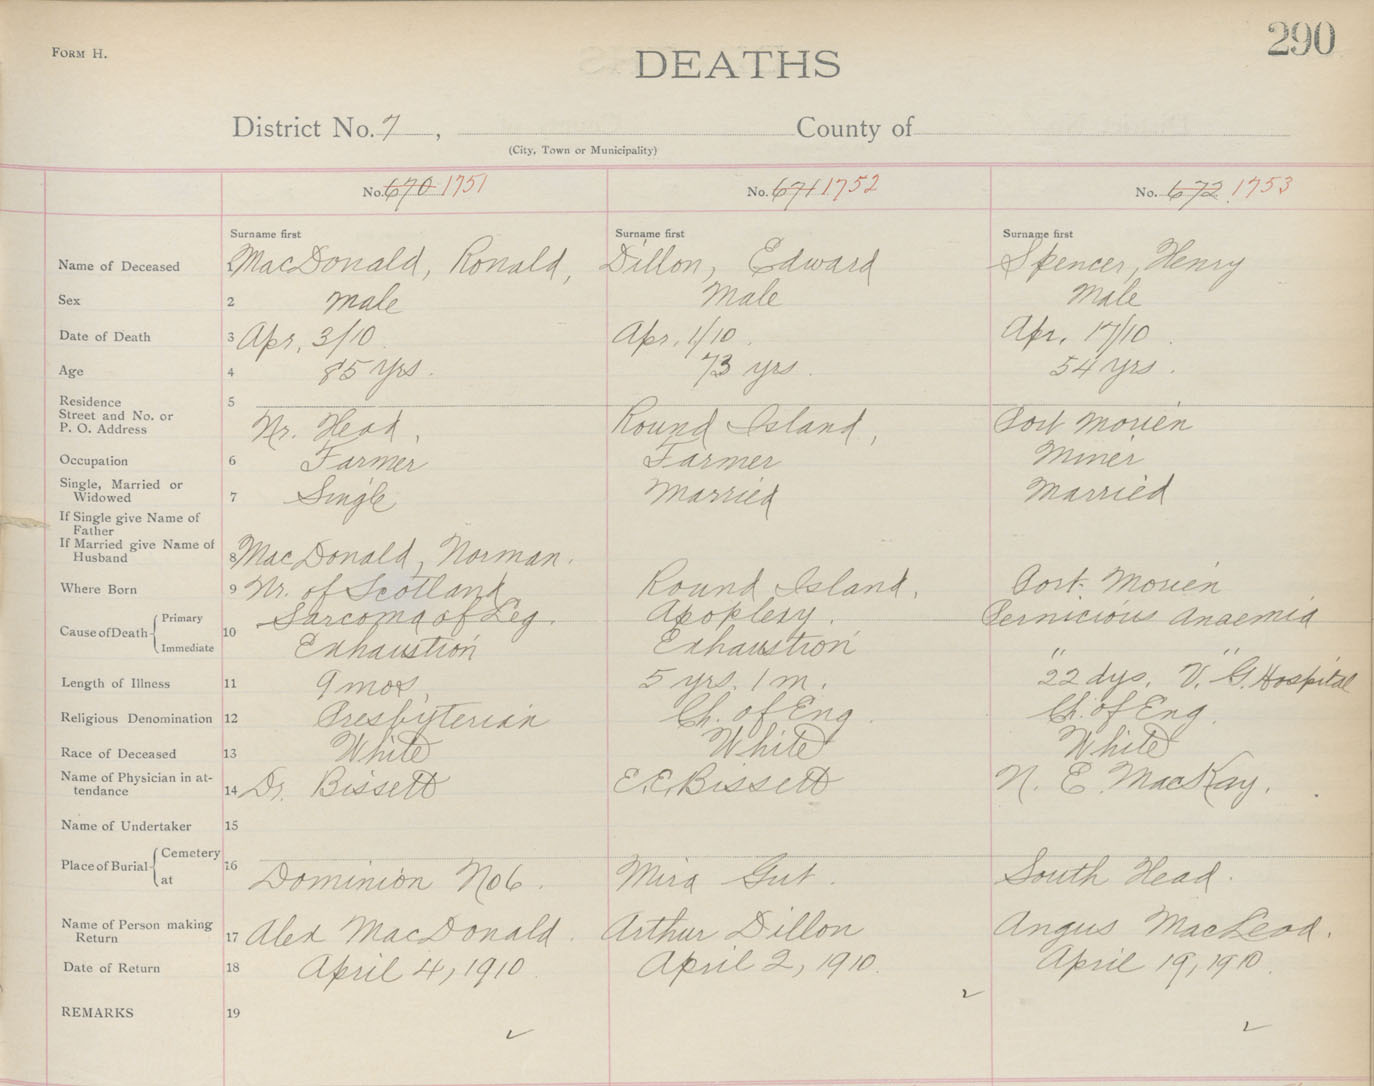 290
FORM H.
DEATHS
District No. 7, County of
(City, Town or Municipality)
No. 670 1751 No. 671 1752 No. 672 1753
Surname first Surname first Surname first
Name of Deceased 1 MacDonald, Ronald, Dillon, Edward Spencer, Henry
Sex 2 Male Male Male
Date of Death 3 Apr. 3/10 Apr. 1/10 Apr. 17/10
Age 4 85 yrs. 73 yrs. 54 yrs.
Residence 5
Street and No. or
P. O. Address Nr. Head, Round Island, Port Morien
Occupation 6 Farmer Farmer Miner
Single, Married or
Widowed 7 Single Married Married
If Single give Name of
Father
If Married give Name of
Husband 8 MacDonald, Norman.
Where Born 9 Nr. of Scotland Round Island, Port Morien
Cause of Death Primary 10 Sarcoma of Leg. Apoplexy. Pernicious Anaemia
Immediate Exhaustion Exhaustion " "
Length of Illness 11 9 mos, 5 yrs. 1 m. 22 dys. V. G. Hospital
Religious Denomination 12 Presbyterian Ch. of Eng. Ch. of Eng.
Race of Deceased 13 White White White
Name of Physician in at-
tendance 14 Dr. Bissett E. E. Bissett N. E. MacKay.
Name of Undertaker 15
Place of Burial Cemetery 16
at Dominion No 6. Mira Gut. South Head.
Name of Person making
Return 17 Alex MacDonald. Arthur Dillon Angus MacLeod.
Date of Return 18 April 4, 1910 April 2, 1910. April 19, 1910.
REMARKS 19